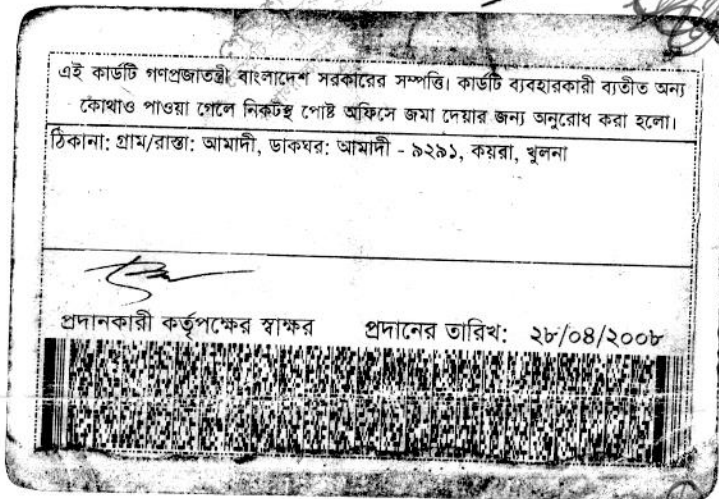 এই কার্ডটি গণপ্রজাতন্ত্রী বাংলাদেশ সরকারের সম্পত্তি। কার্ডটি ব্যবহারকারী ব্যতীত অন্য
কোথাও পাওয়া গেলে নিকটস্থ পোষ্ট অফিসে জমা দেয়ার জন্য অনুরোধ করা হলো।
ঠিকানা: গ্রাম/রাস্তা: আমাদী, ডাকঘর: আমাদী - ৯২৯১, কয়রা, খুলনা
প্রদানকারী কর্তৃপক্ষের স্বাক্ষর প্রদানের তারিখ: ২৮/০৪/২০০৮